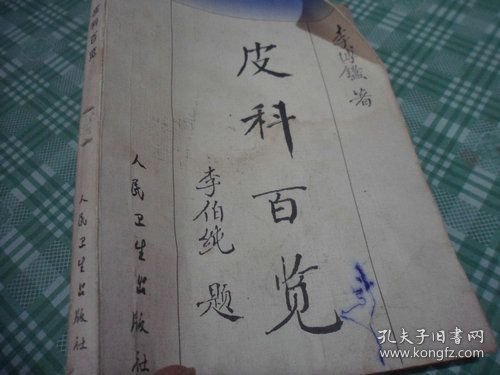 皮科百览
李博鑑 著
李伯纯 题
人民卫生出版社
皮科百览
人民卫生出版社
孔夫子旧书网
www.kongfz.com